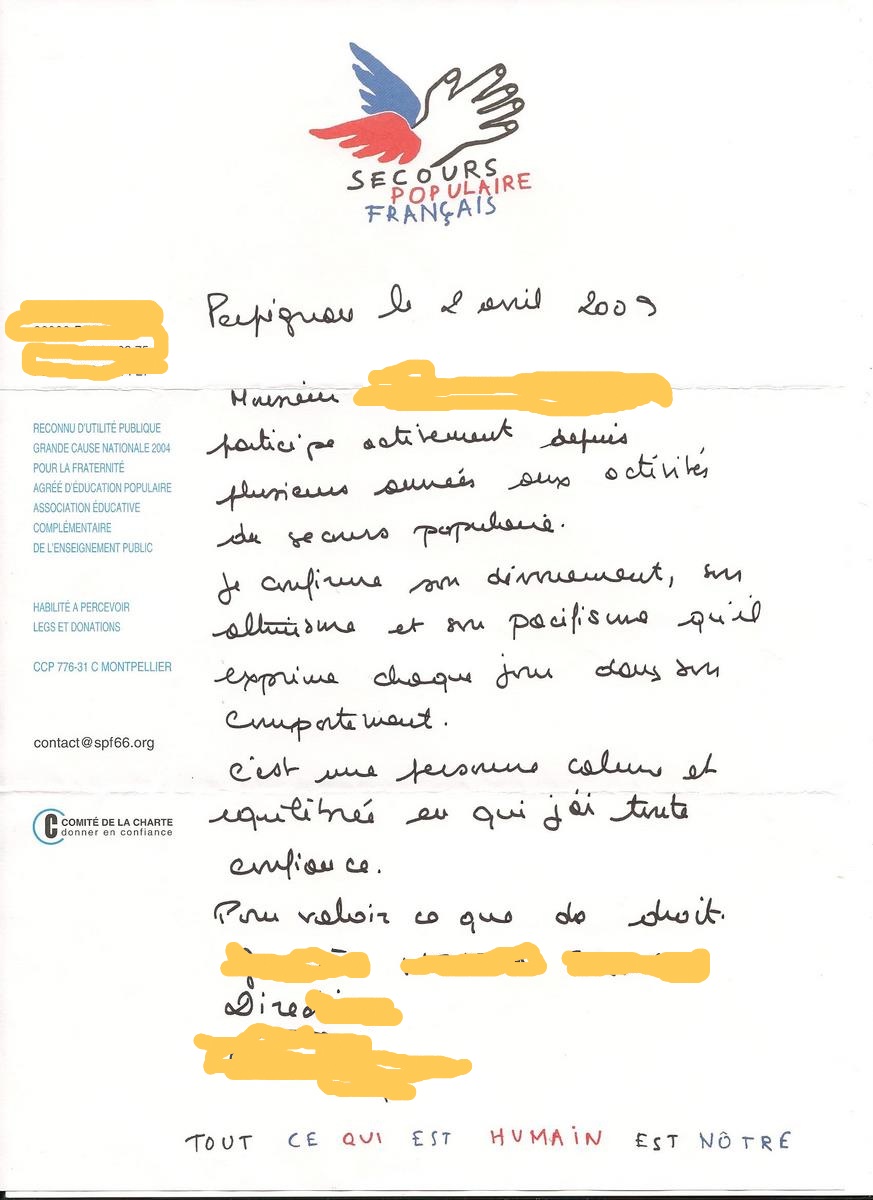 SECOURS
POPULAIRE
FRANÇAIS
Perpignan le 2 avril 2009
Monsieur
participe activement depuis
plusieurs années aux activités
du secours populaire.
Je confirme son dévouement, son
altruisme et son pacifisme qu'il
exprime chaque jour dans son
comportement.
c'est une personne calme et
equilibrée en qui j'ai toute
confiance.
Pour valoir ce que de droit.
RECONNU D'UTILITÉ PUBLIQUE
GRANDE CAUSE NATIONALE 2004
POUR LA FRATERNITÉ
AGRÉÉ D'ÉDUCATION POPULAIRE
ASSOCIATION ÉDUCATIVE
COMPLÉMENTAIRE
DE L'ENSEIGNEMENT PUBLIC
HABILITÉ A PERCEVOIR
LEGS ET DONATIONS
CCP 776-31 C MONTPELLIER
contact@spf66.org
C COMITÉ DE LA CHARTE
donner en confiance
TOUT CE QUI EST HUMAIN EST NÔTRE